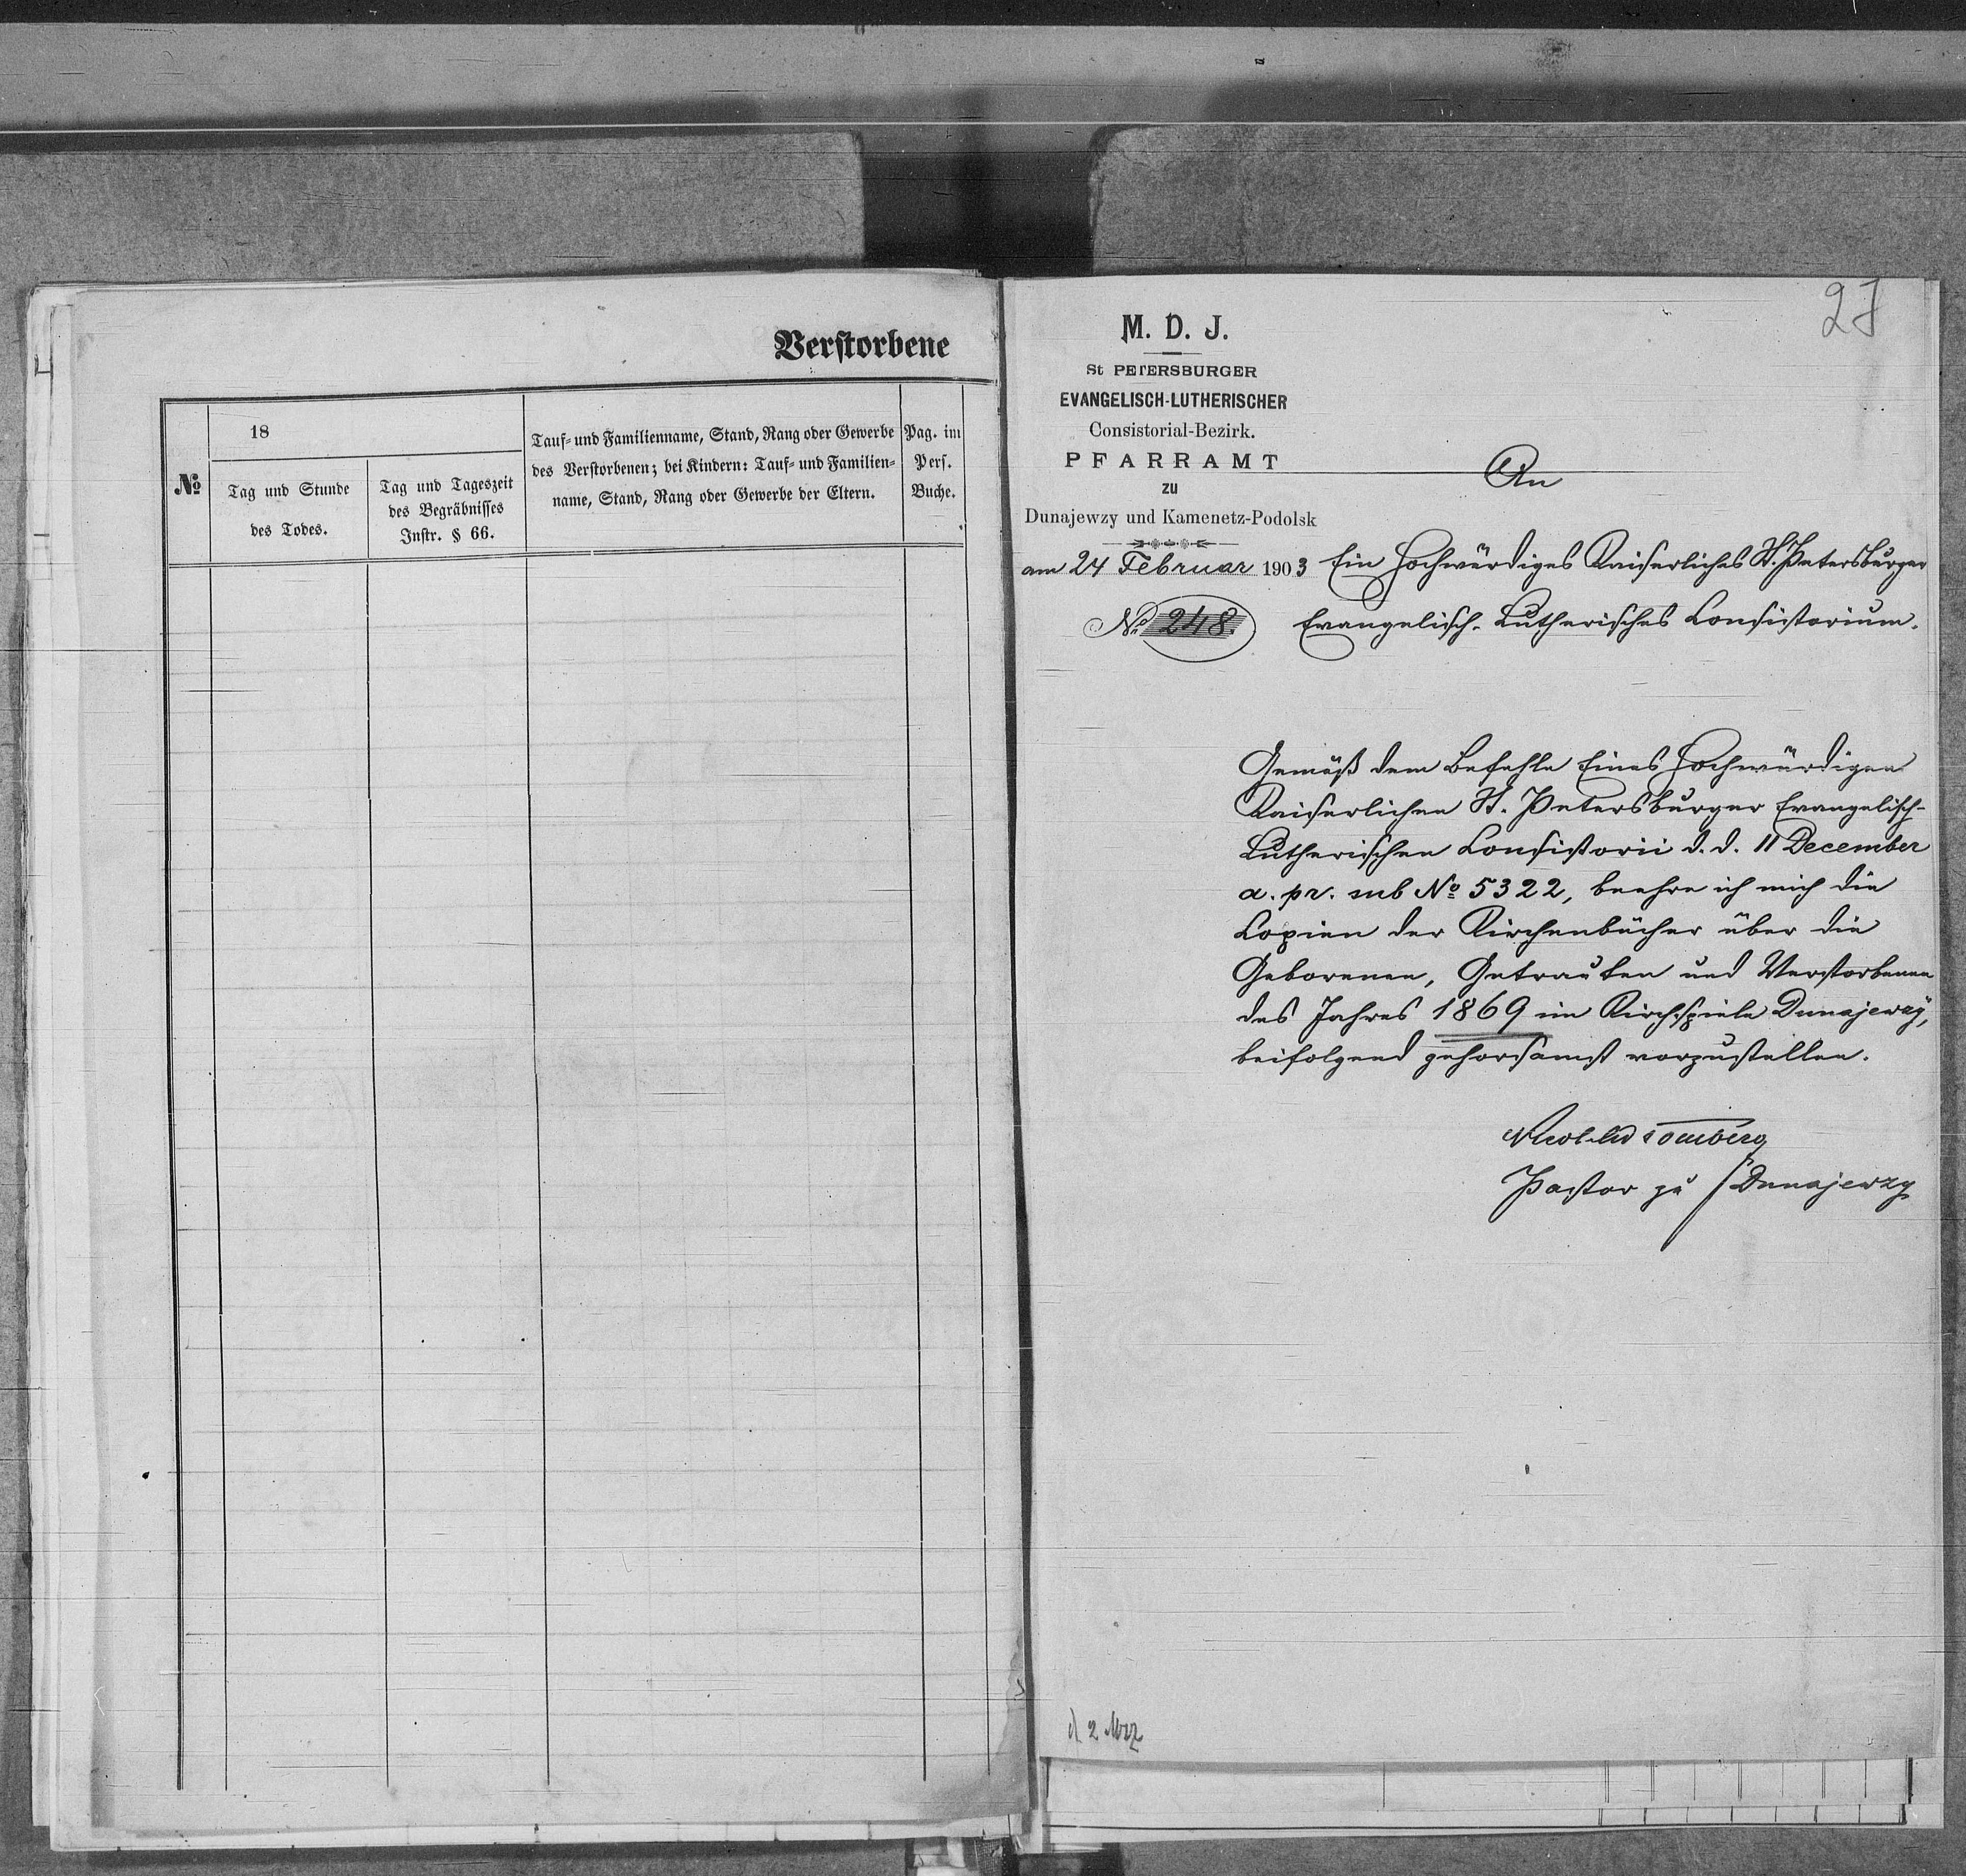 Verstorbene
№
18
Tag und Stunde
des Todes.
Tag und Tageszeit
des Begräbnisses
Instr. § 66.
Tauf- und Familienname, Stand, Rang oder Gewerbe
des Verstorbenen; bei Kindern: Tauf- und Familien-
name, Stand, Rang oder Gewerbe der Eltern.
Pag. im
Pers.
Buche.
M. D. J.
St PETERSBURGER
EVANGELISCH-LUTHERISCHER
Consistorial-Bezirk.
PFARRAMT
zu
Dunajewzy und Kamenetz-Podolsk
am 24 Februar 1903
№ 248.
An
Ein Hochwürdiges Kaiserliches St. Petersburger
Evangelisch-Lutherisches Consistorium.
Gemäß dem Befehle Eines Hochwürdigen
Kaiserlichen St. Petersburger Evangelisch-
Lutherischen Consistorii d. d. 11 December
a. pr. sub № 5322, beehre ich mich die
Copien der Kirchenbücher über die
Geborenen, Getrauten und Verstorbenen
des Jahres 1869 im Kirchspiele Dunajewzy,
beifolgend gehorsamst vorzustellen.
Pastor zu Dunajewzy